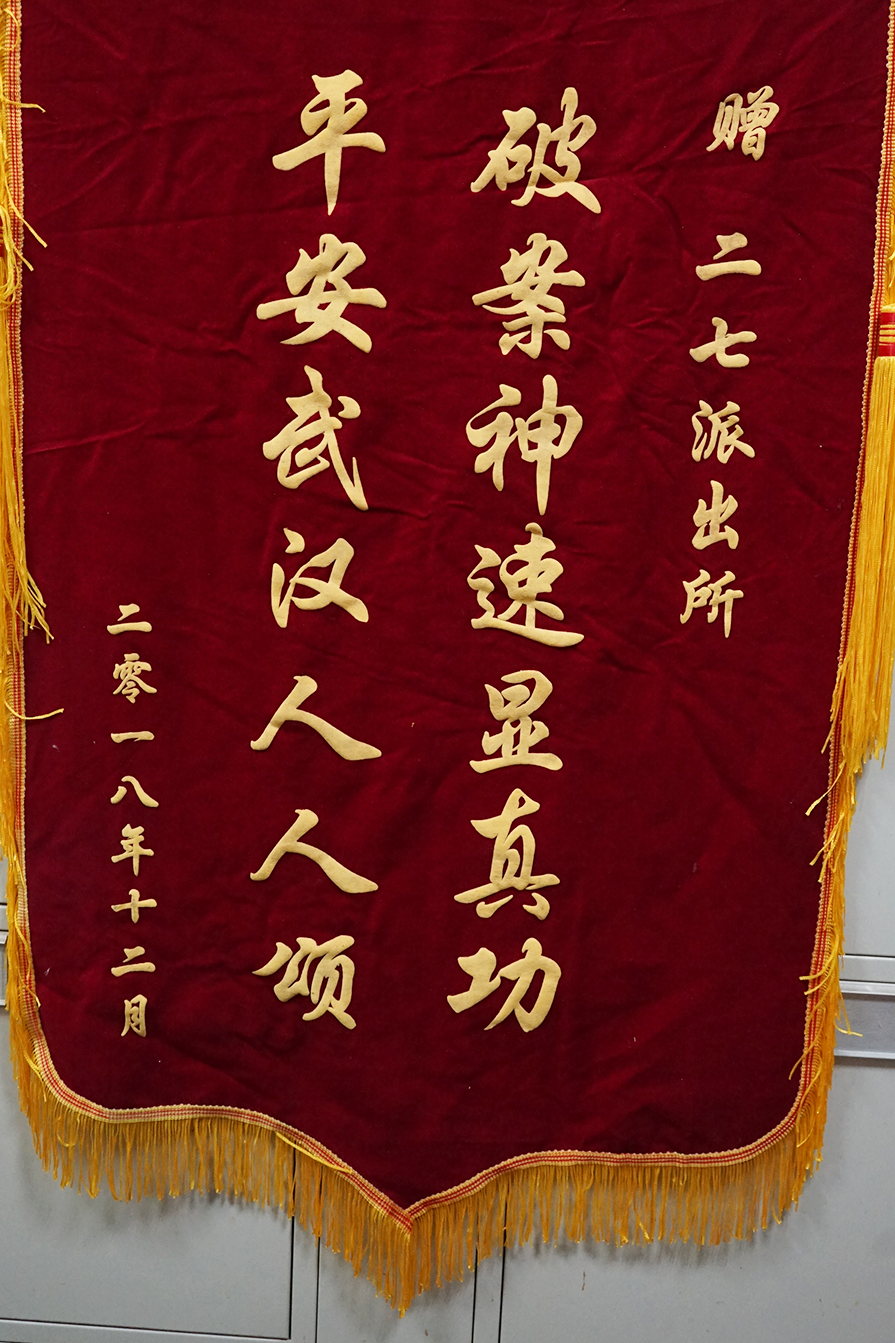 赠 二七派出所
破案神速显真功
平安武汉人人颂
二零一八年十二月